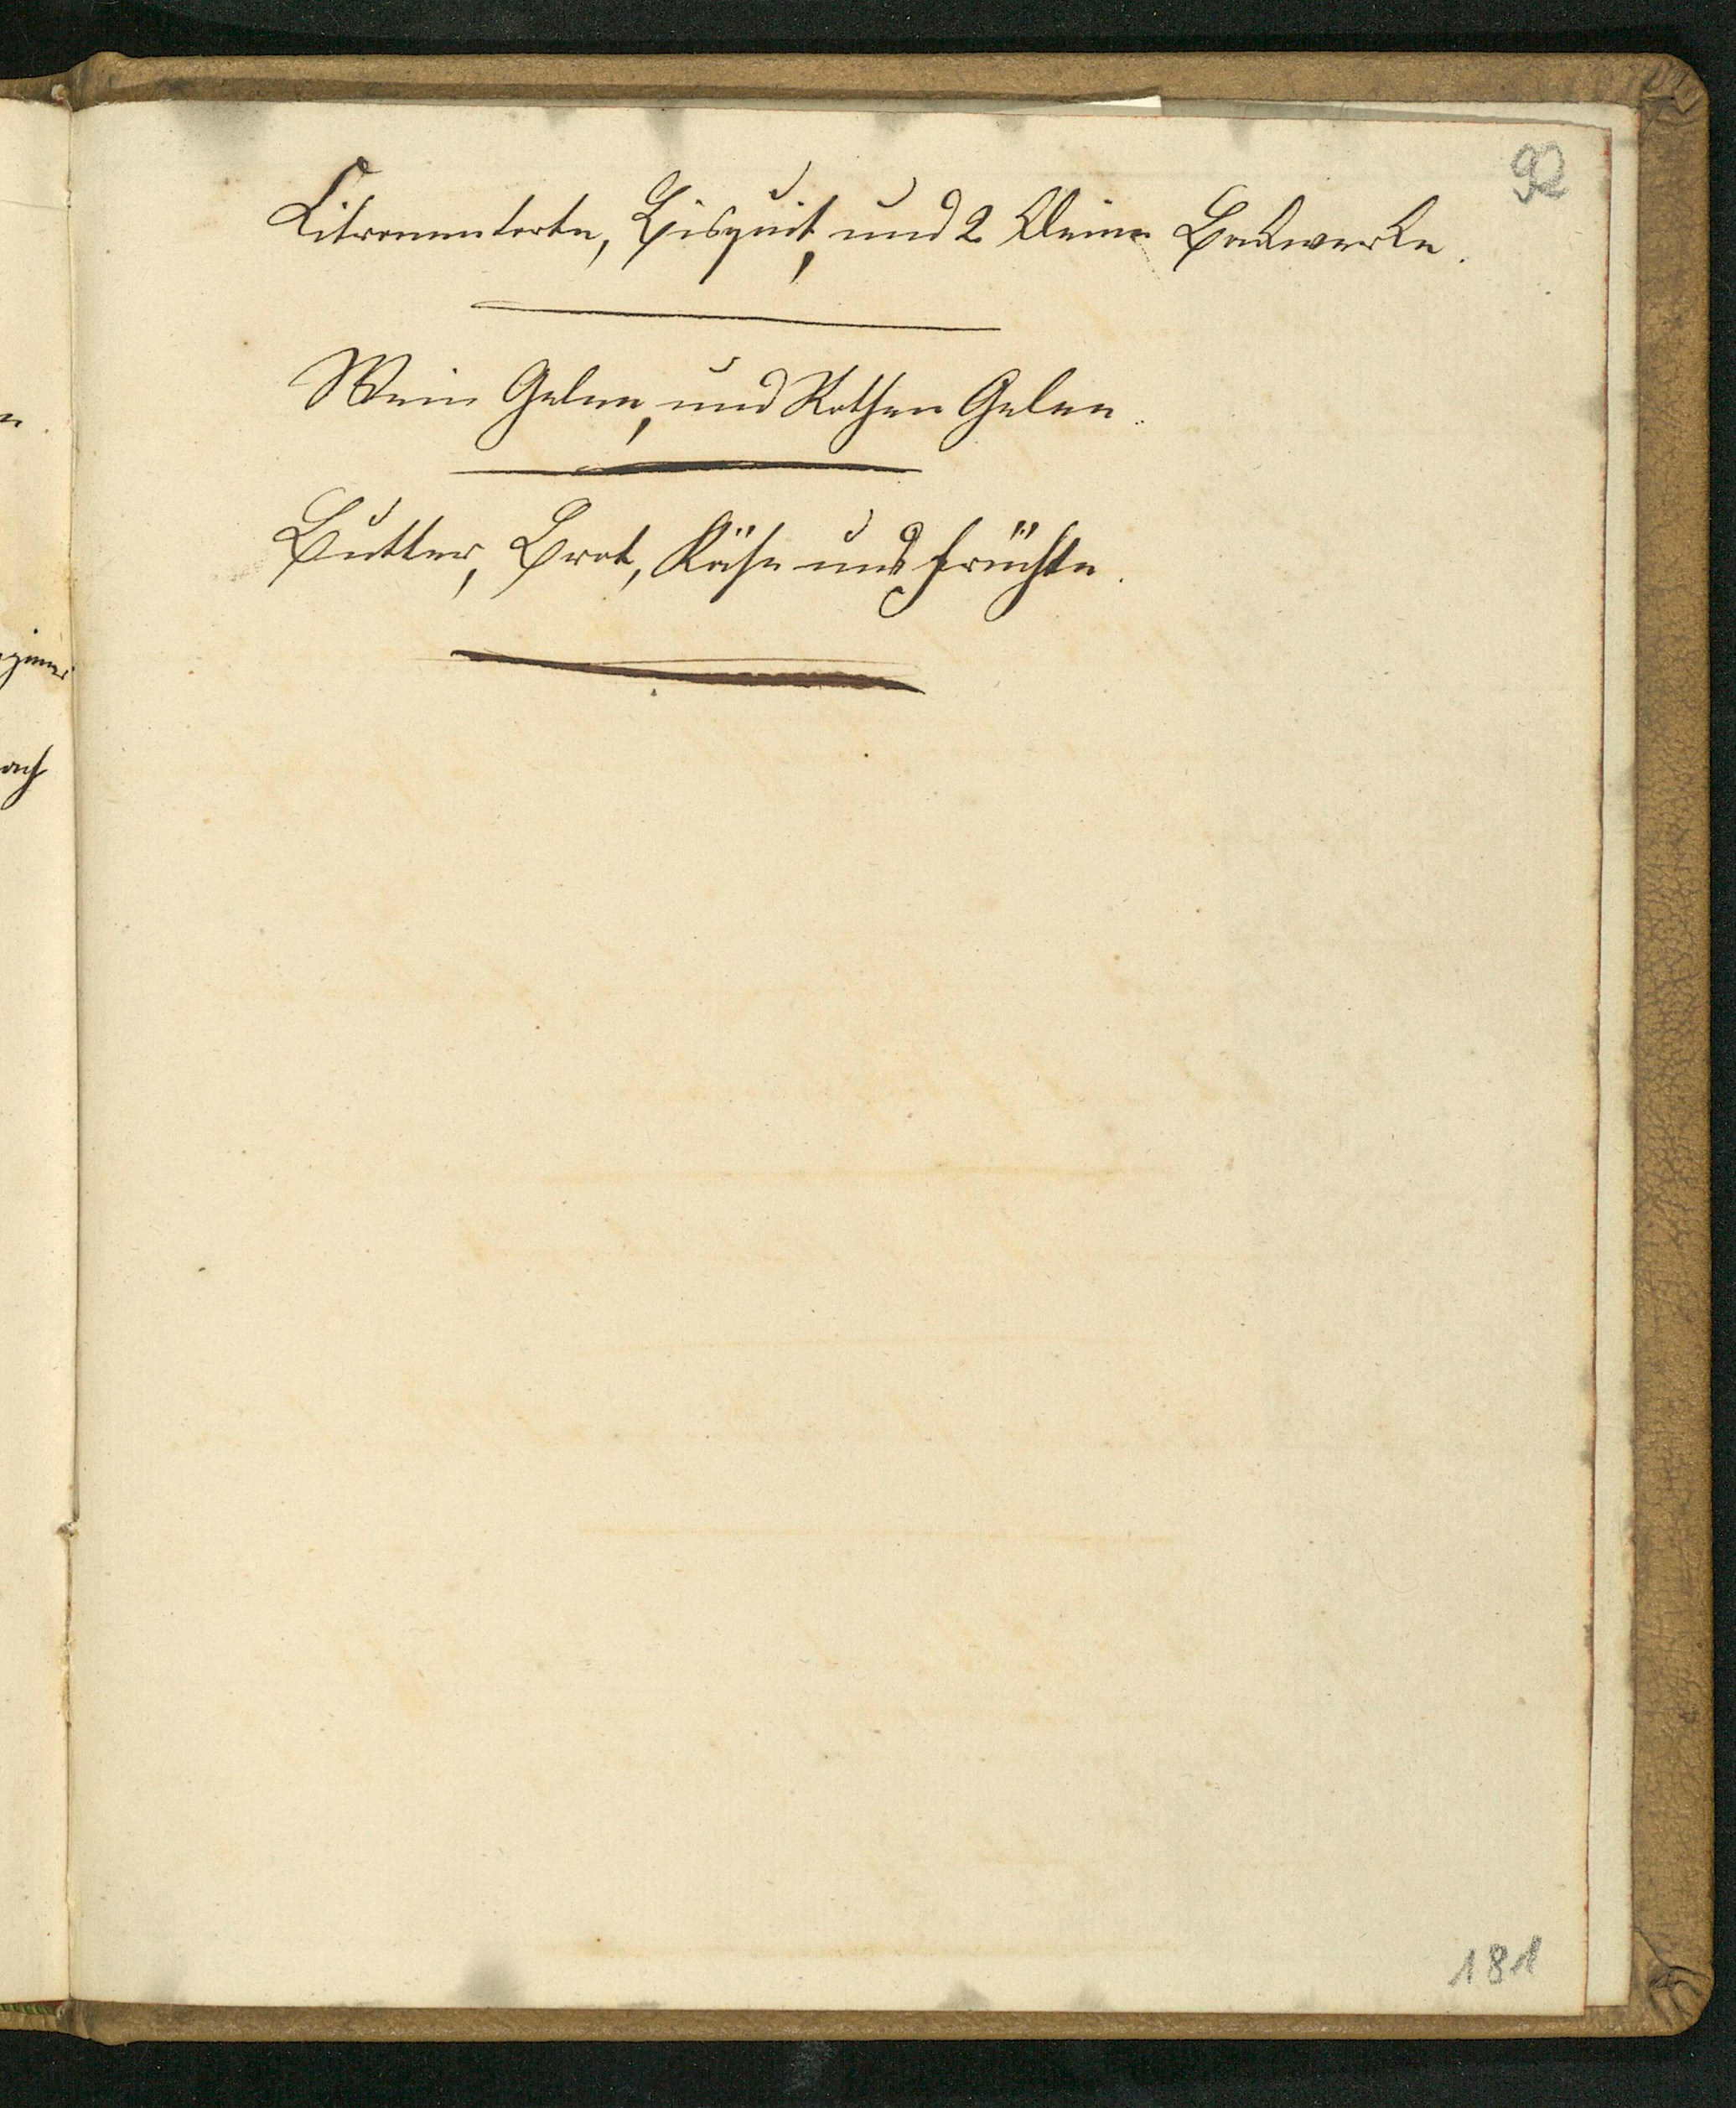 92
Citronentorte, Bisquit, und 2 kleine Backwerke.
Wein Gelee, und Rothen Gelee.
Butter, Brot, Käse und Früchte.
181